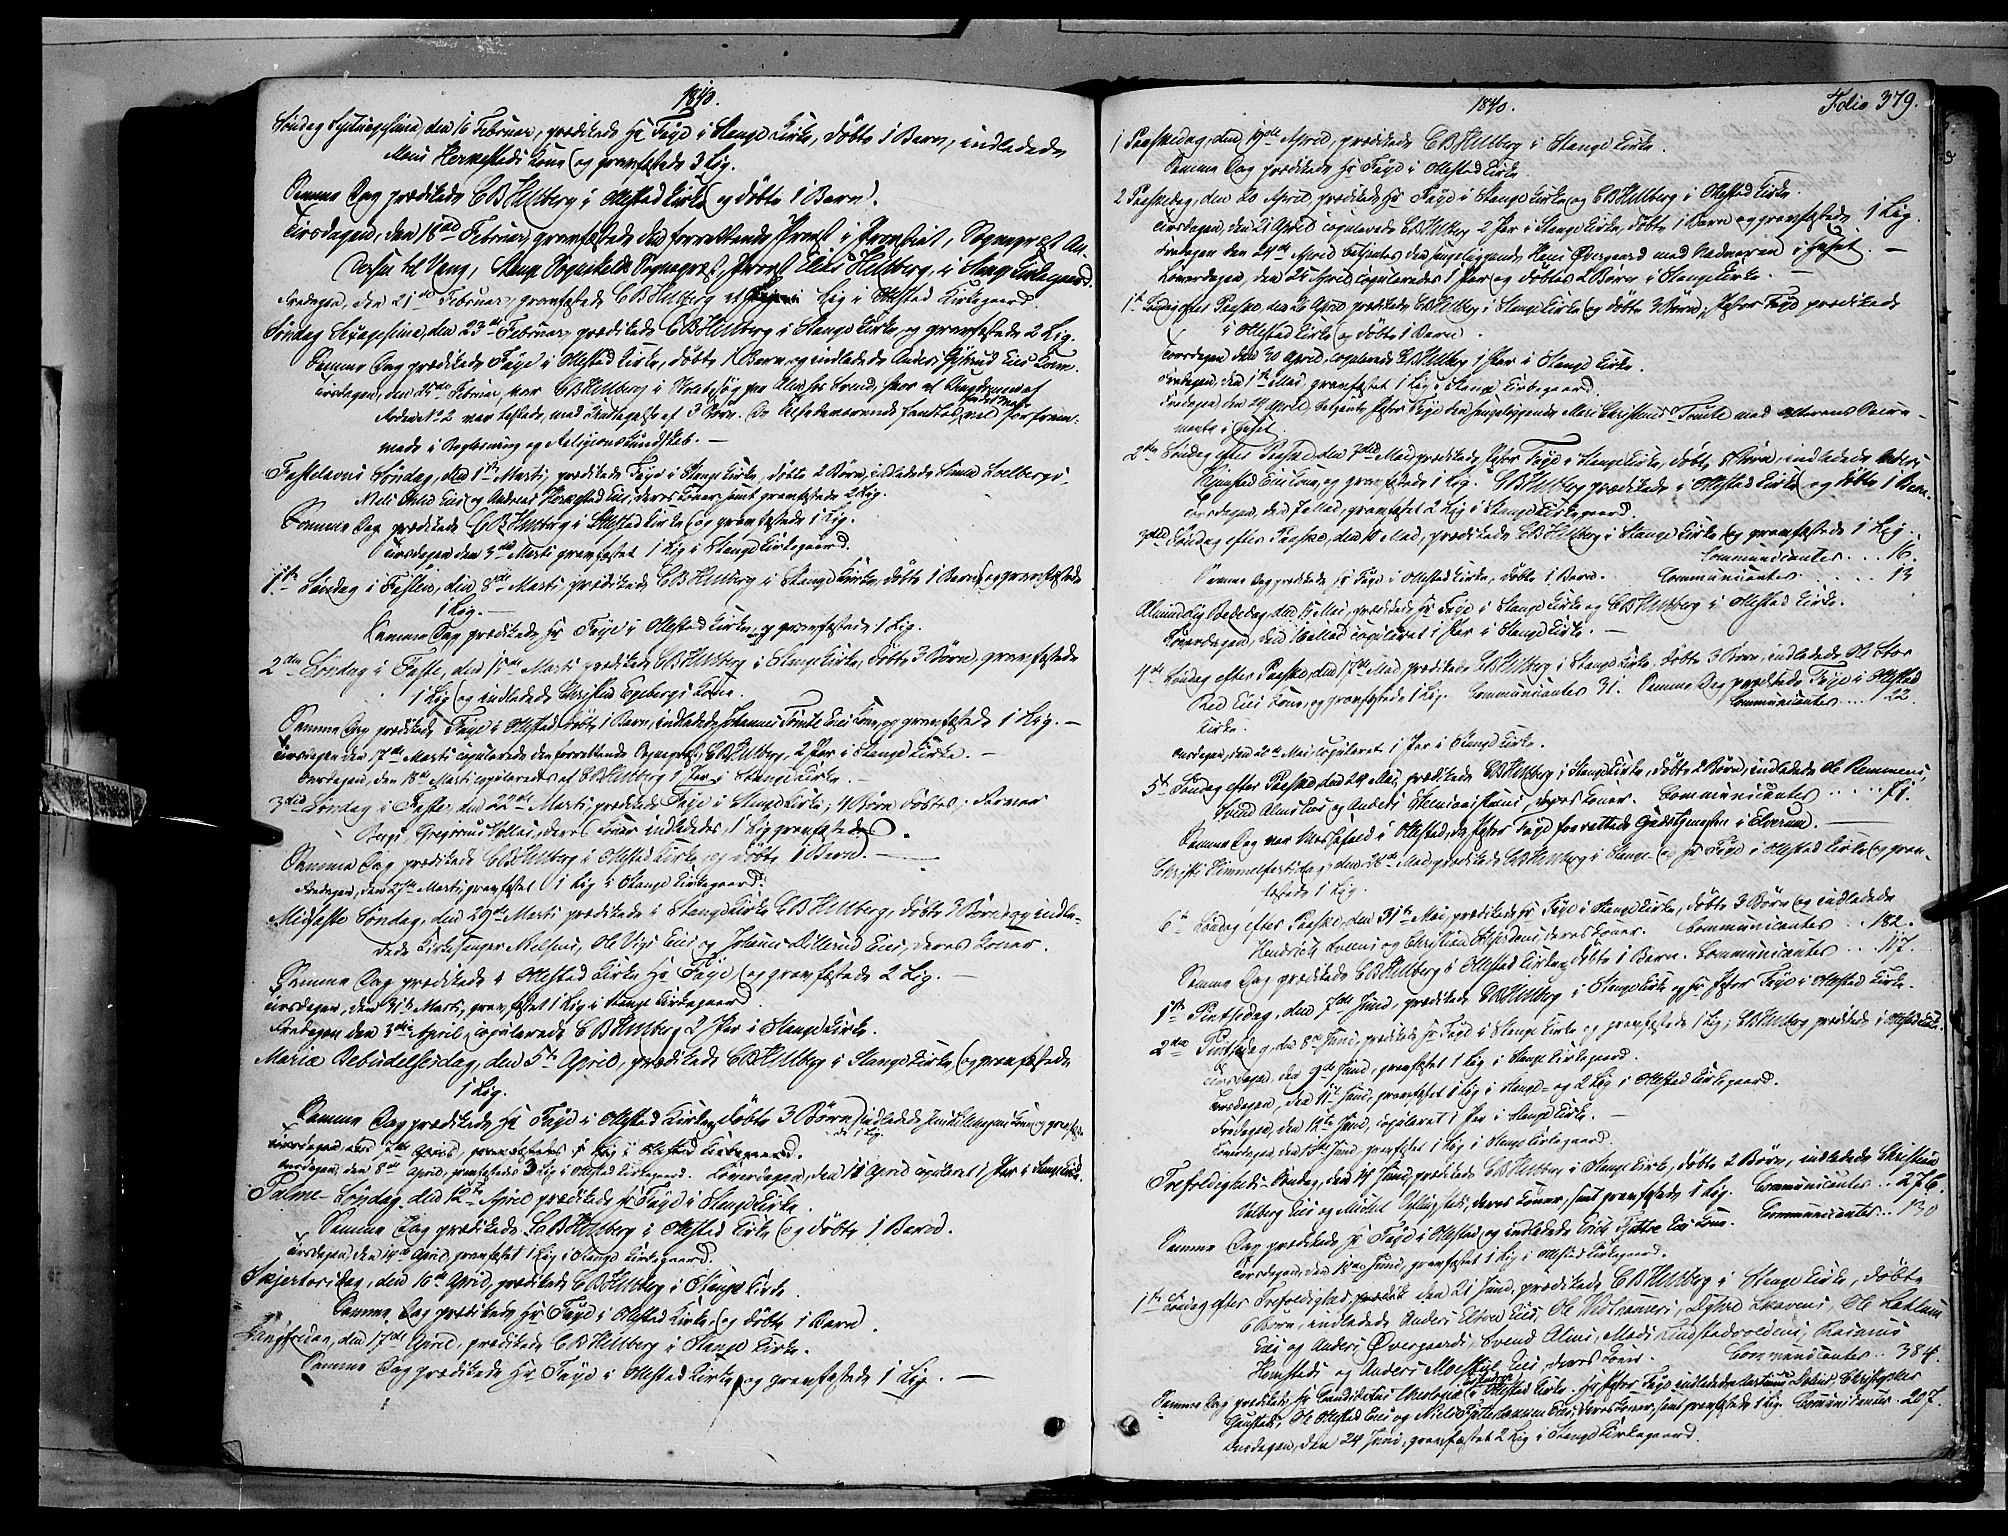 1840.
Søndag Septuagesima, den 16 Februar, prædikede Hr Faye i Stange Kirke, døbte 1 Barn, indledede
Kone og gravfæstede 3 Lig.
Samme Dag prædikede CBHellberg i Ottestad Kirke og døbte 1 Barn.
Tirsdagen, den 18de Februar, gravfæstede den forrettende Provst i Provstiet, Sognepræst An-
dersen til Vang, Stange Sognekalds Sognepræst, Provst Hellberg, i Stange Kirkegaard.
Fredagen, den 21de Februar, gravfæstede CBHellberg et Lig i Ottestad Kirkegaard
Søndag Sexagesima, den 23de Februar, prædikede CBHellberg i Stange Kirke, og gravfæstede 2 Lig.
Samme Dag prædikede Faye i Ottestad Kirke, døbte 1 Barn og indledede Anders Eies Kone.
Tirsdagen, den Februar, var CBHellberg i
No 2 med af 3 Børn. De
i og Religionskundskab. —
Fastelavns Søndag, den 1ste Marts, prædikede Faye i Stange Kirke, døbte 2 Børn, indledede
Niels Eies og Andreas Eies, deres Koner, samt gravfæstede 2 Lig.
Samme Dag prædikede CBHellberg i Ottestad Kirke og gravfæstede 1 Lig.
Tirsdagen den 3de Marts gravfæstet 1 Lig i Stange Kirkegaard.
1ste Søndag i Fasten, den 8de Marts, prædikede CBHellberg i Stange Kirke, døbte 1 Barn, og gravfæstede
1 Lig. —
Samme Dag prædikede Hr Faye i Ottestad Kirke, og gravfæstede 1 Lig.
2den Søndag i Faste, den 15de Marts, prædikede CBHellberg i Stange Kirke, døbte 3 Børn, gravfæstede
1 Lig og indledede Christen Egebergs Kone.
Samme Dag prædikede Faye i Ottestad, døbte 1 Barn, indledede Johannes Tomte Eies Kone, og gravfæstede 1 Lig. —
Tirsdagen den 17de Marts copulerede den forrettende Sognepræst, CBHellberg, 2 Par i Stange Kirke. —
Onsdagen, den 18de Marts copuleredes af CBHellberg 1 Par i Stange Kirke. —
3die Søndag i Faste, den 22de Marts, prædikede Faye i Stange Kirke; 4 Børn døbtes;
deres Koner indledede, 1 Lig gravfæstedes.
Samme Dag prædikede CBHellberg i Ottestad Kirke, og døbte 1 Barn. —
Fredagen, den 27de Marts, gravfæstet 1 Lig i Stange Kirkegaard.
Midfaste Søndag, den 29de Marts prædikede i Stange Kirke CBHellberg, døbte 3 Børn og indle-
dede Kirkesanger Nielsens, Ole Eies og Johannes Eies, deres Koner.
Samme Dag prædikede i Ottestad Kirke Hr Faye og gravfæstede 2 Lig. —
Tirsdagen, den 31te Marts, gravfæstet 1 Lig i Stange Kirkegaard.
Fredagen den 3die April copulerede CBHellberg 2 Par i Stange Kirke.
Mariæ Bebudelsesdag, den 5te April, prædikede CBHellberg i Stange Kirke og gravfæstede
1 Lig.
Samme Dag prædikede Hr Faye i Ottestad Kirke, døbte 3 Børn, indledede Kone og gravfæste-
de 1 Lig.
Tirsdagen den 7de April, gravfæstedes 1 Lig i Ottestad Kirkegaard.
Onsdagen, den 8de April, gravfæstedes 3 Lig i Ottestad Kirkegaard. Løverdagen, den 11 April copuleret 1 Par i Stange Kirke.
Palme-Søndag, den 12te April prædikede Hr Faye i Stange Kirke.
Samme Dag prædikede CBHellberg i Ottestad Kirke og døbte 1 Barn.
Tirsdagen, den 14de April gravfæstet 1 Lig i Stange Kirkegaard.
Skjertorsdag, den 16de April, prædikede CBHellberg i Stange Kirke.
Samme Dag prædikede Hr Faye i Ottestad Kirke og døbte 1 Barn.
Langfredag, den 17de April, prædikede CBHellberg i Stange Kirke.
Samme Dag prædikede Hr Faye i Ottestad Kirke, og gravfæstede 1 Lig. —
1840.
Folio 379.
1 Paaskedag, den 19de April, prædikede CBHellberg i Stange Kirke.
Samme Dag prædikede Hr Faye i Ottestad Kirke.
2 Paaskedag, den 20 April, prædikede Hr Faye i Stange Kirke, og CBHellberg i Ottestad Kirke.
Tirsdagen, den 21 April copulerede CBHellberg 2 Par i Stange Kirke, døbte 1 Barn og gravfæstede 1 Lig.
Fredagen den 24de April betjentes den sengeliggende Hans Øvergaard med Nadveren i Huset. —
Løverdagen, den 25 April, copuleredes 1 Par og døbtes 2 Børn i Stange Kirke. —
1ste Søndag efter Paaske, den 26 April prædikede CBHellberg i Stange Kirke og døbte 3 Børn, Pastor Faye prædikede
i Ottestad Kirke og døbte 1 Barn.
Torsdagen den 30 April, copulerede CBHellberg 1 Par i Stange Kirke.
Fredagen, den 1ste Mai, gravfæstet 1 Lig i Stange Kirkegaard.
Fredagen, den 24 April, betjente Pastor Faye den sengeliggende Tomte med Alterens Sacra-
mente i Huset.
2den Søndag efter Paaske, den 3die Mai prædikede Pastor Faye i Stange Kirke, døbte Børn, indledede Anders
Eies Kone, og gravfæstede 1 Lig. CBHellberg prædikede i Ottestad Kirke og døbte 1 Barn.
Torsdagen, den 7 Mai, gravfæstet 2 Lig i Stange Kirkegaard.
3die Søndag efter Paaske, den 10 Mai, prædikede CBHellberg i Stange Kirke og gravfæstede 1 Lig.
Communicantes ... 16.
Samme Dag prædikede Hr Faye i Ottestad Kirke, døbte 1 Barn. Communicantes ..... 13
Almindelig Bededag, den 15 Mai, prædikede Hr Faye i Stange Kirke og CBHellberg i Ottestad Kirke.
Løverdagen, den 16 Mai copuleret 1 Par i Stange Kirke. —
4de Søndag efter Paaske, den 17de Mai prædikede CBHellberg i Stange Kirke, døbte 3 Børn, indledede Ole Stor
Eies Kone, og gravfæstede 1 Lig. Communicantes 31. Samme Dag prædikede Faye i Ottestad
Kirke. Communicantes ... 22.
Onsdagen, den 20de Mai copuleret 1 Par i Stange Kirke.
5te Søndag efter Paaske, den 24 Mai, prædikede CBHellberg i Stange Kirke, døbte 2 Børn, indledede Ole Remmens,
Svend og Anders deres Koner. Communicantes ..... 71.
Samme Dag var Messefald i Ottestad, da Pastor Faye forrettede Gudstjenesten i Elverum. —
Christi Himmelfartsdag, den 28de Mai, prædikede CBHellberg i Stange og Hr Faye i Ottestad Kirke og grav-
fæstede 1 Lig.
6te Søndag efter Paaske, den 31te Mai, prædikede Hr Faye i Stange Kirke, døbte 3 Børn og indledede
Hendrich og Christian deres Koner. Communicantes .. 182.
Samme Dag prædikede CBHellberg i Ottestad Kirke, døbte 1 Barn. Communicantes ... 117.
1ste Pintsedag, den 7de Juni, prædikede CBHellberg i Stange Kirke og Hr Pastor Faye i Ottestad Kirke.
2den Pintsedag, den 8de Juni, prædikede Hr Faye i Stange Kirke og gravfæstede 1 Lig; CBHellberg prædikede i Ottestad Kirke.
Tirsdagen, den 9de Juni, gravfæstet 1 Lig i Stange Kirkegaard.
Torsdagen, den 11te Juni, gravfæstet 1 Lig i Stange- og 2 Lig i Ottestad Kirkegaard.
Fredagen, den 12te Juni, copuleret 1 Par i Stange Kirke.
Løverdagen, den 13de Juni gravfæstet 1 Lig i Stange Kirkegaard.
Trefoldigheds-Søndag, den 14 Juni, prædikede CBHellberg i Stange Kirke, døbte 2 Børn, indledede Christian
Eies og Michel deres Koner, samt gravfæstede 1 Lig. Communicantes .. 276.
Samme Dag prædikede Hr Faye i Ottestad og indledede Erich Eies Kone. Communicantes .. 130
Torsdagen, den 18de Juni, gravfæstet 1 Lig i Ottestad Kirkegaard.
1ste Søndag efter Trefoldighed den 21 Juni, prædikede CBHellberg i Stange Kirke, døbte
6 Børn, indledede Anders Eies, Ole Ole
Eies og Anders Øvergaards, Svend Almes, Mads Rasmus
og Anders Eies, deres Koner. Communicantes .. 384.
Samme Dag prædikede Hr Candidatus Theologiæ i Ottestad Kirke. Hr Pastor Faye indledede Christopher
Ole Ottestad Eies og Niels Eies, deres Koner, samt gravfæstede 1 Lig. Communicantes .. 207.
Onsdagen, den 24 Juni, gravfæstet 2 Lig i Stange Kirkegaard.